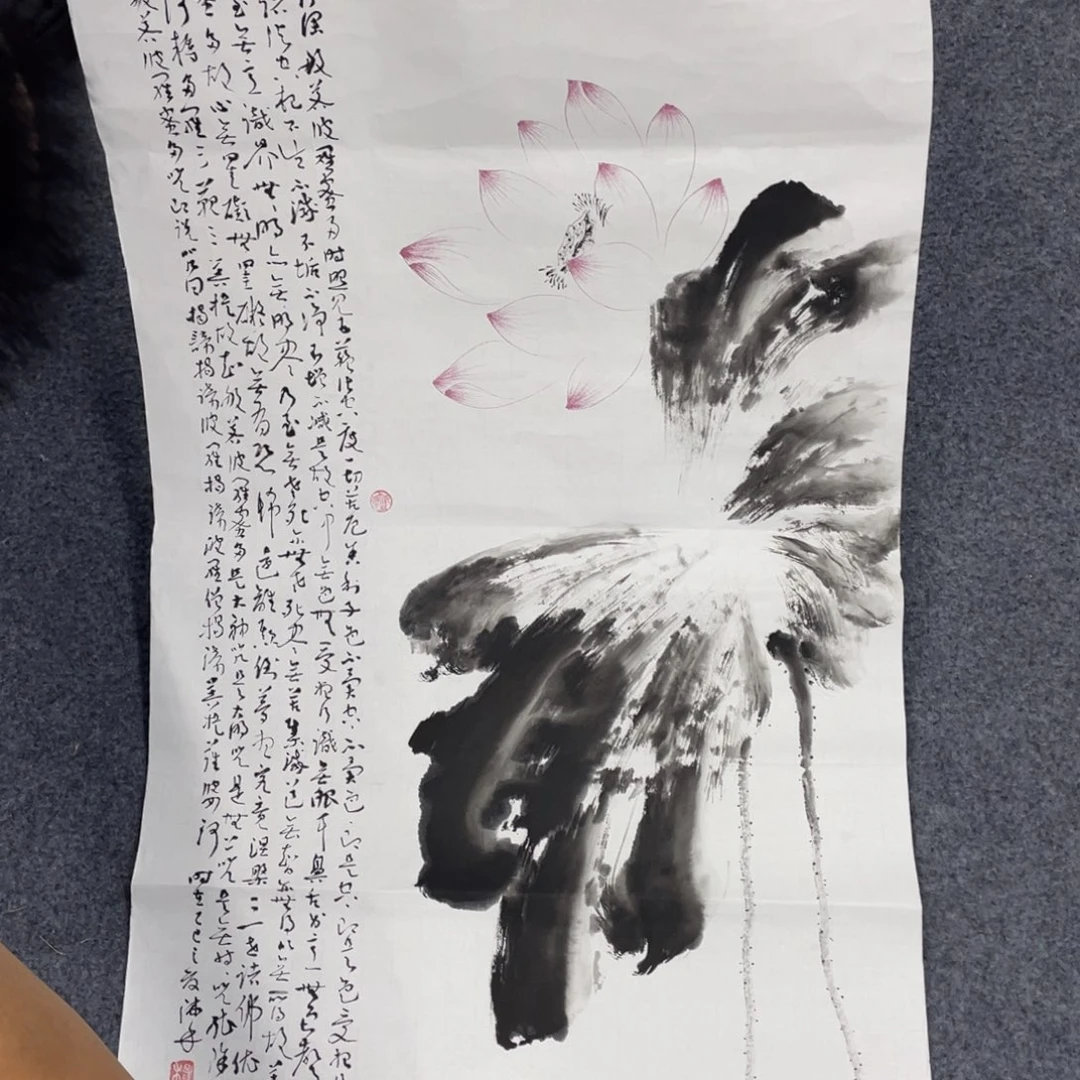 行深般若波羅蜜多時照見五蘊皆空度一切苦厄舍利子色不異空空不異色色即是空空即是色受想
諸法空相不生不滅不垢不淨不增不減是故空中無色無受想行識無眼耳鼻舌身意無色聲
至無意識界無無明亦無無明盡乃至無老死亦無老死盡無苦集滅道無智亦無得以無所得故菩
蜜多故心無罣礙無罣礙故無有恐怖遠離顛倒夢想究竟涅槃三世諸佛依
阿耨多羅三藐三菩提故知般若波羅蜜多是大神咒是大明咒是無上咒是無等等咒能除
般若波羅蜜多咒即說咒曰揭諦揭諦波羅揭諦波羅僧揭諦菩提薩婆訶
時在乙巳之